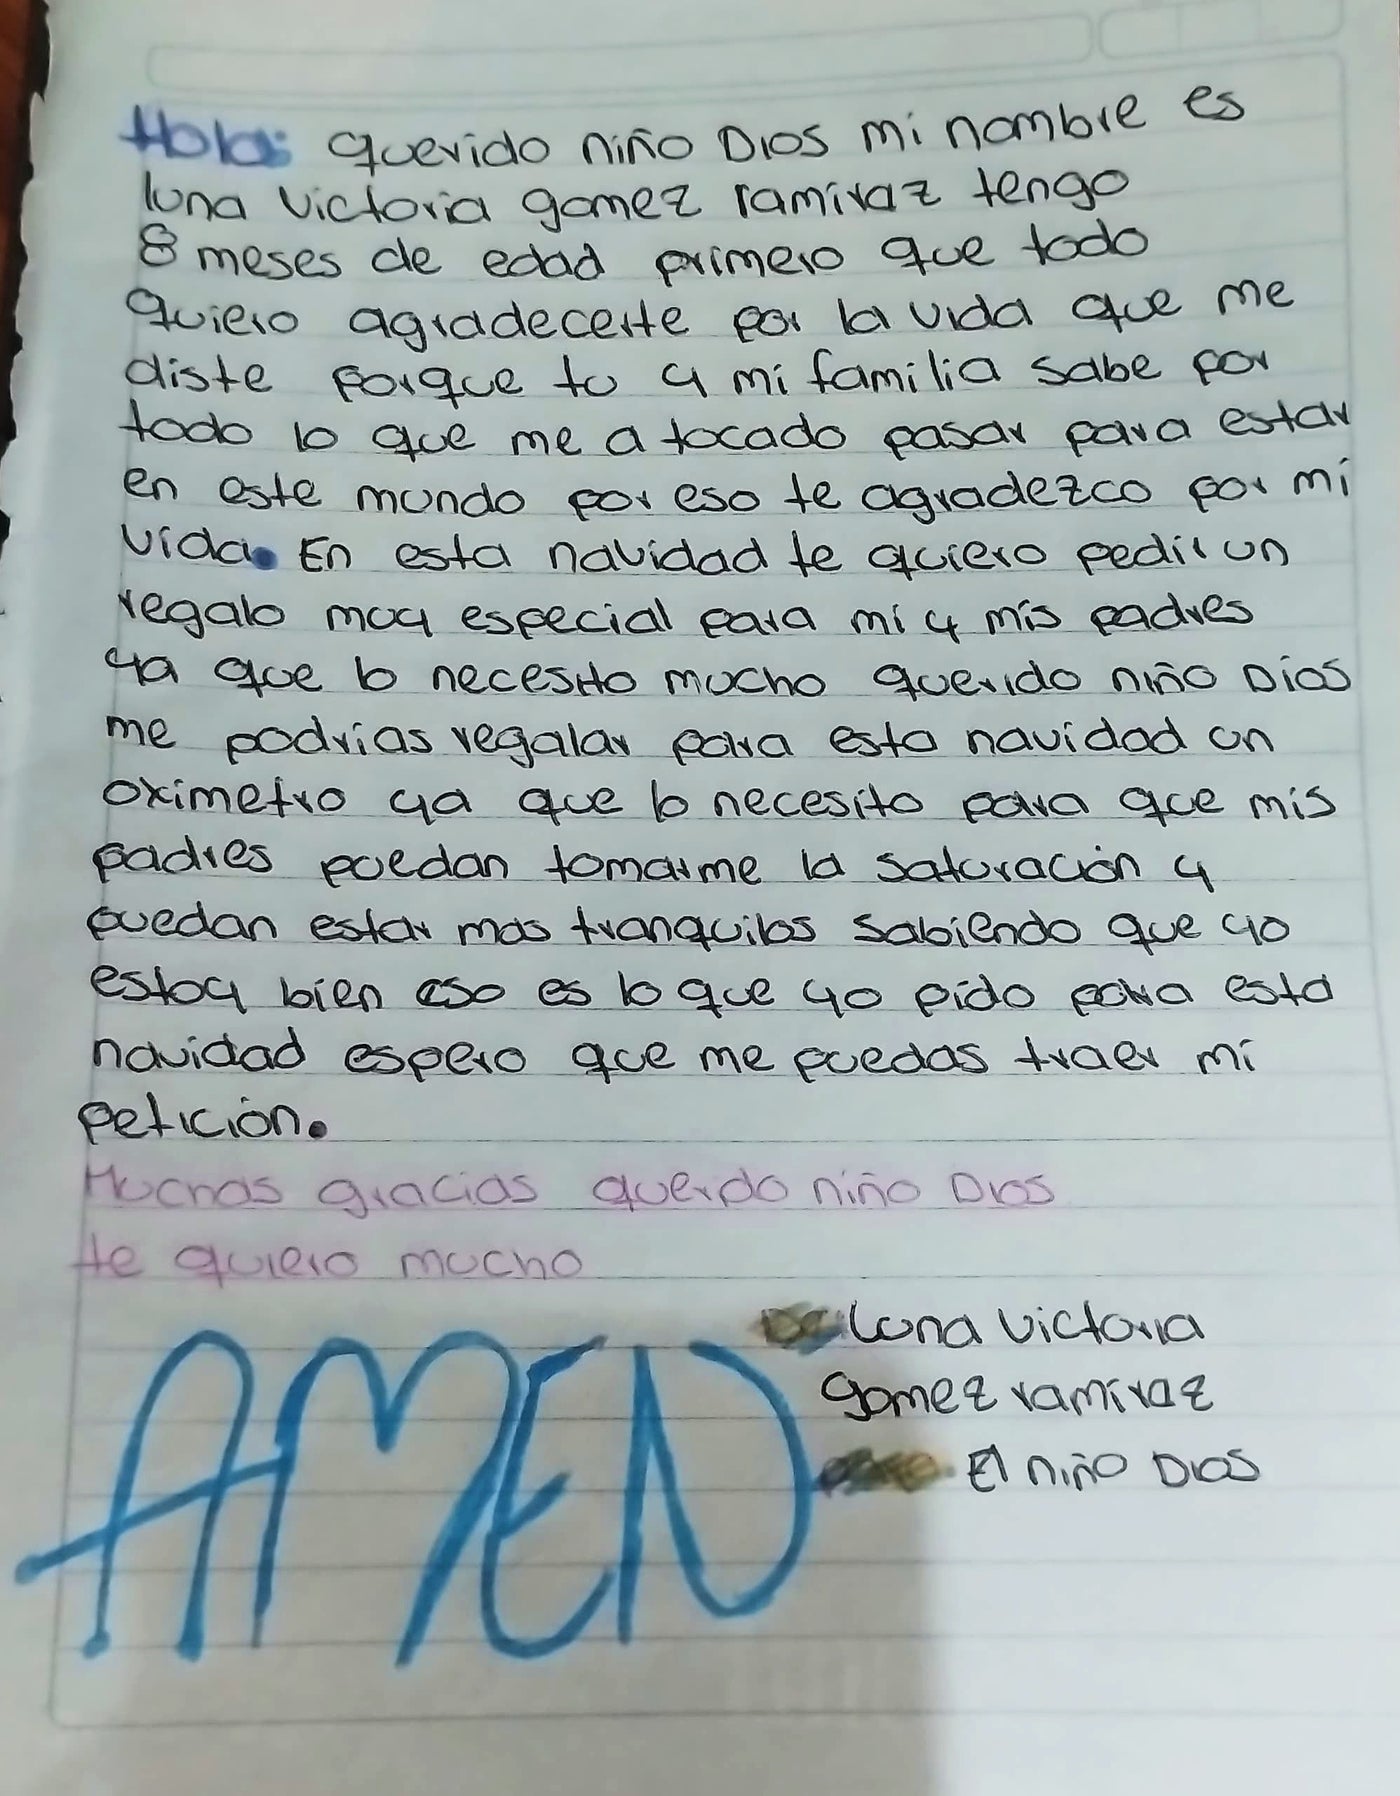 Hola: querido niño Dios mi nombre es
luna victoria gomez ramiraz tengo
8 meses de edad primero que todo
quiero agradecerte por la vida que me
diste porque tu y mi familia sabe por
todo lo que me a tocado pasar para estar
en este mundo por eso te agradezco por mi
vida. En esta navidad te quiero pedir un
regalo muy especial para mi y mis padres
ya que lo necesito mucho querido niño Dios
me podrias regalar para esta navidad un
oximetro ya que lo necesito para que mis
padres puedan tomarme la saturación y
puedan estar mas tranquilos sabiendo que yo
estoy bien eso es lo que yo pido para esta
navidad espero que me puedas traer mi
petición.
Muchas gracias querido niño Dios
te quiero mucho
luna victoria
gomez ramiraz
El niño Dios
AMEN